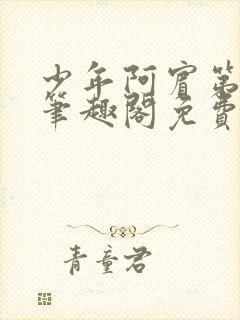 少年阿賓第
筆趣閣免費
青童君